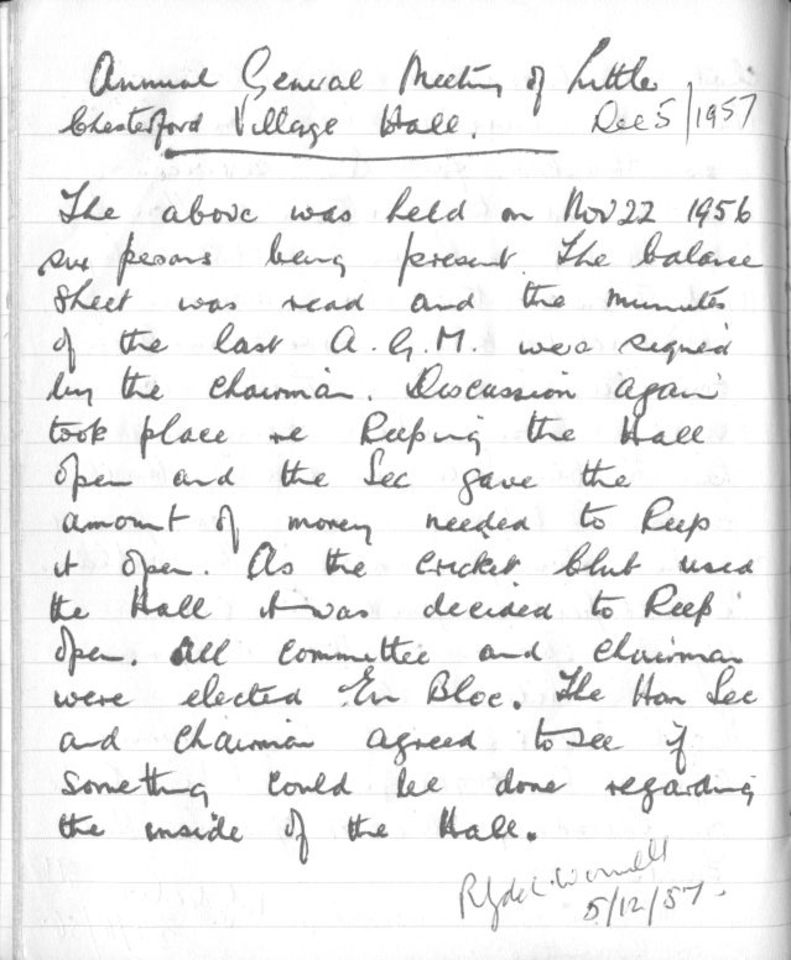 Annual General Meeting of Little
Chesterford Village Hall. Dec 5/1957
The above was held on Nov 22 1956
six persons being present. The balance
sheet was read and the minutes
of the last A.G.M. were signed
by the chairman. Discussion again
took place re keeping the Hall
open and the Sec gave the
amount of money needed to keep
it open. As the cricket club used
the Hall it was decided to keep
open. All committee and chairman
were elected En Bloc. The Hon Sec
and chairman agreed to see if
something could be done regarding
the inside of the Hall.
5/12/57.